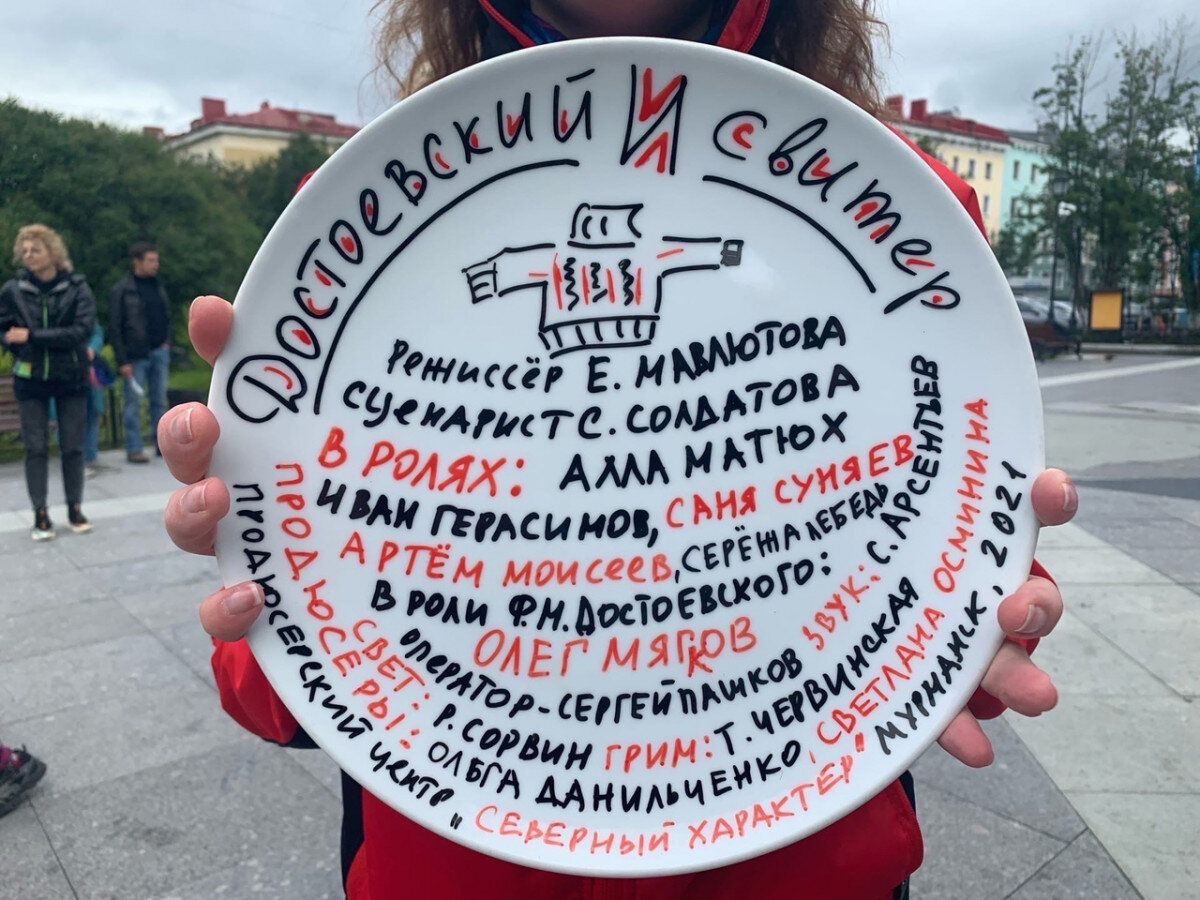 Достоевский И свитер
Режиссёр Е. МАВЛЮТОВА
СЦЕНАРИСТ С. СОЛДАТОВА
В РОЛЯХ: АЛЛА МАТЮХ
ИВАН ГЕРАСИМОВ, САНЯ СУНЯЕВ
АРТЁМ МОИСЕЕВ, СЕРЁЖА ЛЕБЕДЬ
В РОЛИ Ф.М. ДОСТОЕВСКОГО:
ОЛЕГ МЯГКОВ
ОПЕРАТОР - СЕРГЕЙ ПАШКОВ ЗВУК: С. АРСЕНТЬЕВ
СВЕТ: Р. СОРВИН ГРИМ: Т. ЧЕРВИНСКАЯ
ПРОДЮСЕРЫ: ОЛЬГА ДАНИЛЬЧЕНКО, СВЕТЛАНА ОСМИНИНА
ПРОДЮСЕРСКИЙ ЦЕНТР „СЕВЕРНЫЙ ХАРАКТЕР" МУРМАНСК, 2021